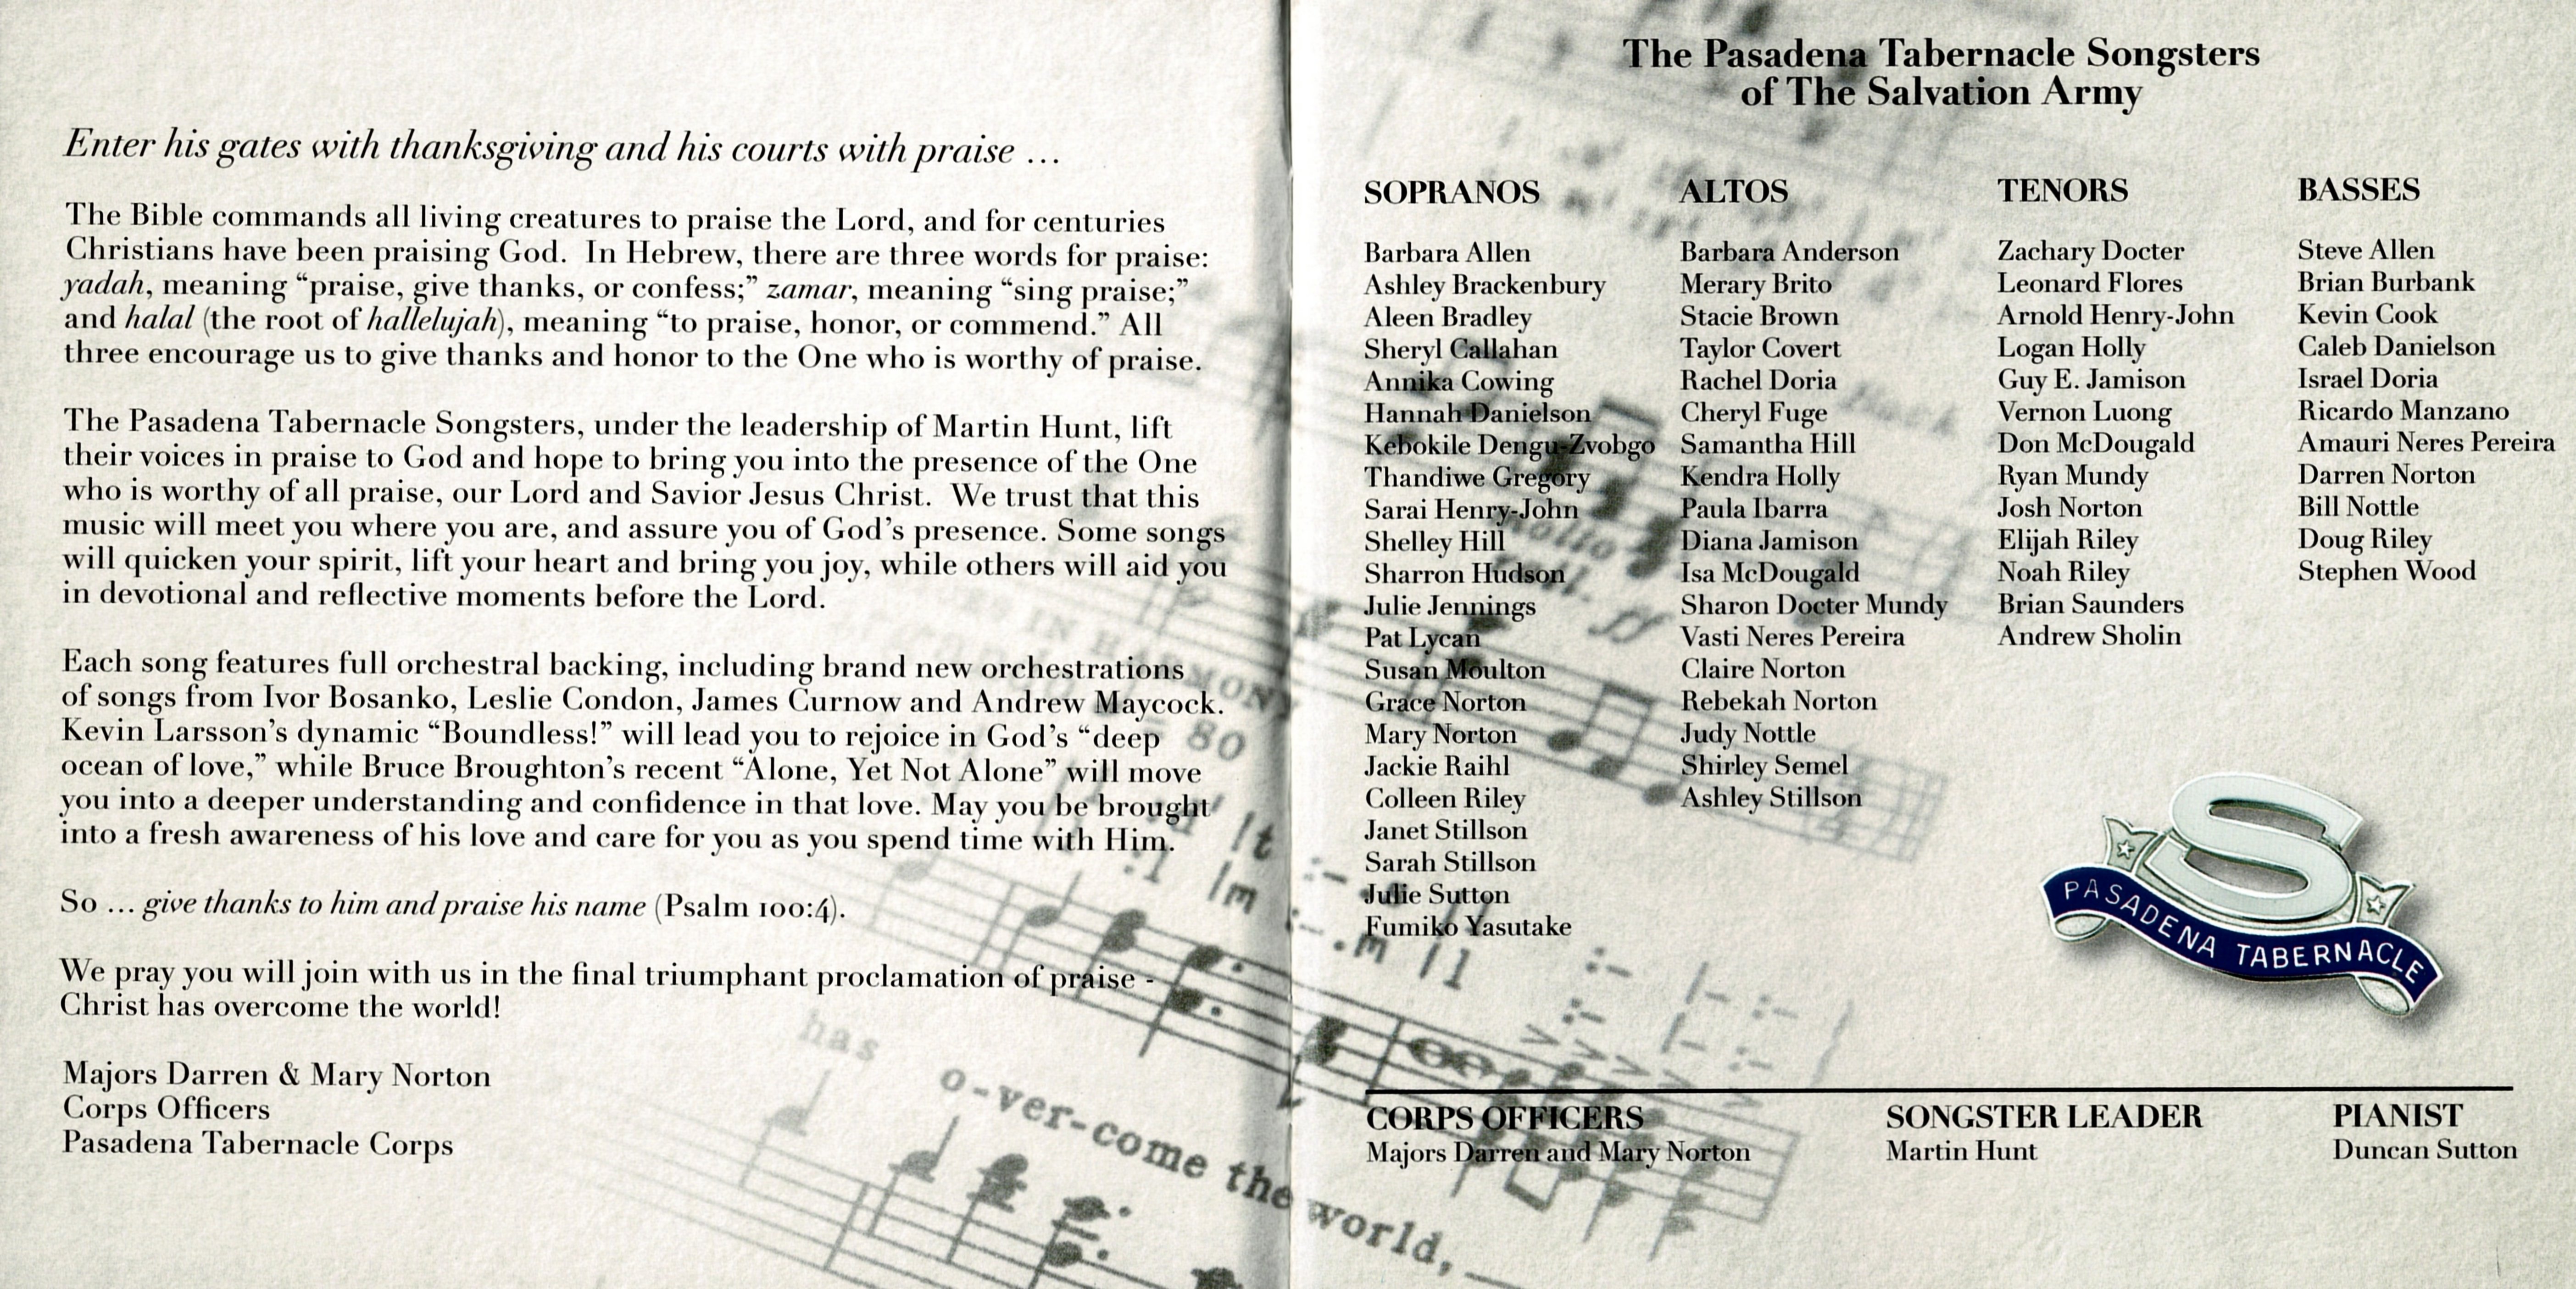 Enter his gates with thanksgiving and his courts with praise …
The Bible commands all living creatures to praise the Lord, and for centuries
Christians have been praising God.  In Hebrew, there are three words for praise:
yadah, meaning “praise, give thanks, or confess;” zamar, meaning “sing praise;”
and halal (the root of hallelujah), meaning “to praise, honor, or commend.” All
three encourage us to give thanks and honor to the One who is worthy of praise.
The Pasadena Tabernacle Songsters, under the leadership of Martin Hunt, lift
their voices in praise to God and hope to bring you into the presence of the One
who is worthy of all praise, our Lord and Savior Jesus Christ.  We trust that this
music will meet you where you are, and assure you of God’s presence. Some songs
will quicken your spirit, lift your heart and bring you joy, while others will aid you
in devotional and reflective moments before the Lord.
Each song features full orchestral backing, including brand new orchestrations
of songs from Ivor Bosanko, Leslie Condon, James Curnow and Andrew Maycock.
Kevin Larsson’s dynamic “Boundless!” will lead you to rejoice in God’s “deep
ocean of love,” while Bruce Broughton’s recent “Alone, Yet Not Alone” will move
you into a deeper understanding and confidence in that love. May you be brought
into a fresh awareness of his love and care for you as you spend time with Him.
So … give thanks to him and praise his name (Psalm 100:4).
We pray you will join with us in the final triumphant proclamation of praise -
Christ has overcome the world!
Majors Darren & Mary Norton
Corps Officers
Pasadena Tabernacle Corps
has
o-ver-come the world,
80
The Pasadena Tabernacle Songsters
of The Salvation Army
SOPRANOS
Barbara Allen
Ashley Brackenbury
Aleen Bradley
Sheryl Callahan
Annika Cowing
Hannah Danielson
Kebokile Dengu-Zvobgo
Thandiwe Gregory
Sarai Henry-John
Shelley Hill
Sharron Hudson
Julie Jennings
Pat Lycan
Susan Moulton
Grace Norton
Mary Norton
Jackie Raihl
Colleen Riley
Janet Stillson
Sarah Stillson
Julie Sutton
Fumiko Yasutake
ALTOS
Barbara Anderson
Merary Brito
Stacie Brown
Taylor Covert
Rachel Doria
Cheryl Fuge
Samantha Hill
Kendra Holly
Paula Ibarra
Diana Jamison
Isa McDougald
Sharon Docter Mundy
Vasti Neres Pereira
Claire Norton
Rebekah Norton
Judy Nottle
Shirley Semel
Ashley Stillson
TENORS
Zachary Docter
Leonard Flores
Arnold Henry-John
Logan Holly
Guy E. Jamison
Vernon Luong
Don McDougald
Ryan Mundy
Josh Norton
Elijah Riley
Noah Riley
Brian Saunders
Andrew Sholin
BASSES
Steve Allen
Brian Burbank
Kevin Cook
Caleb Danielson
Israel Doria
Ricardo Manzano
Amauri Neres Pereira
Darren Norton
Bill Nottle
Doug Riley
Stephen Wood
S
PASADENA TABERNACLE
CORPS OFFICERS
Majors Darren and Mary Norton
SONGSTER LEADER
Martin Hunt
PIANIST
Duncan Sutton